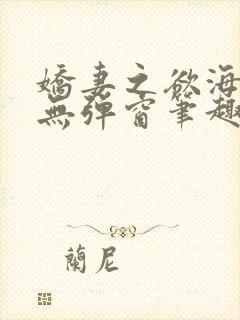 嬌妻之欲海
無彈窗筆趣
蘭尼